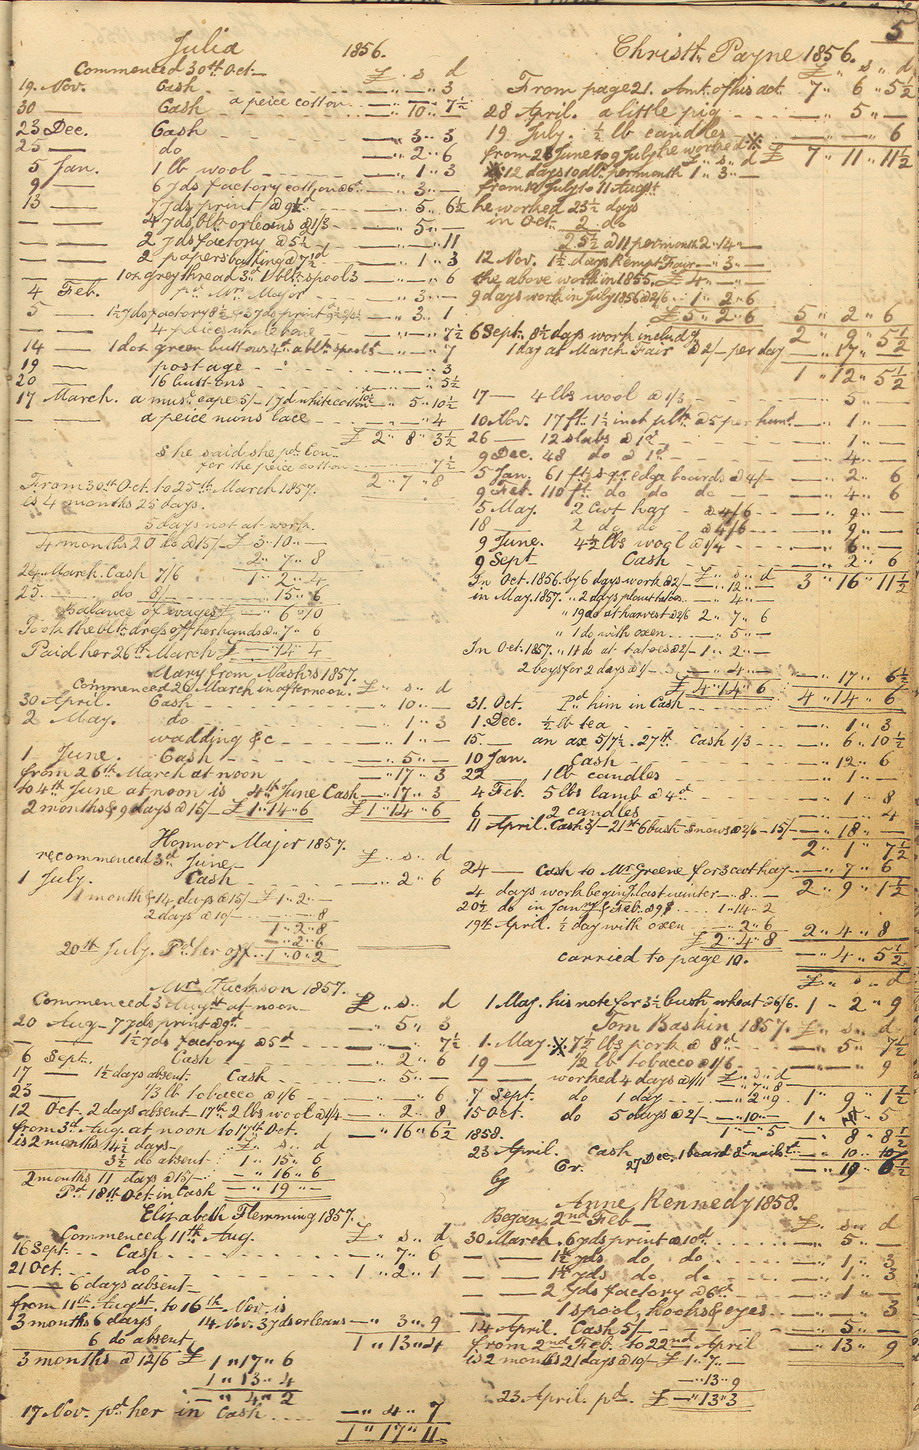 5
Julia 1856.
Commenced 30th Oct— £ „ s „ d
19. Nov. Cash — „ — „ 3
30 — Cash a peice cotton — „ 10 „ 7½
23 Dec. Cash — „ 3 „ 3
25 — do — „ 2 „ 6
5 Jan. 1 lb wool — „ 1 „ 3
9 — 6 yds factory cotton @6d — „ 3 „ —
13 — 7 yds print @9½d — „ 5 „ 6½
— 4 yds blk orleans @1/3 — „ 5 „ —
— 2 yds factory @5½ — „ — „ 11
— 2 papers batting @7½d — „ 1 „ 3
1 oz grey thread 3d 1 blk spool 3 — „ — „ 6
4 Feb. pd Mrs Major — „ 3 „ —
5 — 1½ yds factory 8½ & 3 yds print — „ 3 „ 1
— 4 peices whale bone — „ — „ 7½
14 1 doz green buttons 4d a blk spool 3d — „ — „ 7
19 — postage — „ — „ 3
20 — 16 buttons — „ — „ 5½
17 March. a mus. cape 5/- 1 yd white cotton — „ 5 „ 10½
— a peice nuns lace — „ — „ 4
£ 2 „ 8 „ 3½
She said she pd Con—
for the peice cotton — 7½
2 „ 7 „ 8
From 30th Oct. to 25th March 1857.
is 4 months 25 days.
5 days not at work.
4 months 20 do @15/- £ 3 „ 10 „ —
2 „ 7 „ 8
24 March. Cash 7/6 1 „ 2 „ 4
25. — do 8/- — „ 15 „ 6
Balance of wages £ — „ 6 „ 10
Took the blk dress off her hands @ — „ 7 „ 6
Paid her 26th March £ — „ 14 „ 4
Mary from Nashs 1857.
Commenced 26 March in afternoon. £ „ s „ d
30 April. Cash — „ 10 „ —
2 May. do — „ 1 „ 3
wadding &c — „ 1 „ —
1 June. Cash — „ 5 „ —
from 26th March at noon — „ 17 „ 3
to 4th June at noon is 4th June Cash — „ 17 „ 3
2 months & 9 days @15/- £ 1 „ 14 „ 6 £ 1 „ 14 „ 6
Honnor Major 1857.
recommenced 3rd June — £ „ s „ d
1 July. Cash — „ 2 „ 6
1 month & 14 days @15/- £ 1 „ 2 „ —
2 days @10/- — „ — „ 8
1 „ 2 „ 8
— „ 2 „ 6
20th July. Pd her off 1 „ 0 „ 2
Mrs Jackson 1857.
Commenced 3 Augst at noon £ „ s „ d
20 Aug — 7 yds print @9d — „ 5 „ 3
— 1½ yds factory @5d — „ — „ 7½
6 Sept. Cash — „ 2 „ 6
17 — 1½ days absent. Cash — „ 5 „ —
25 — 1/3 lb tobacco @1/6 — „ — „ 6
12 Oct. 2 days absent 17th 2 lbs wool @1/4 — „ 2 „ 8
from 3rd Aug. at noon to 17th Oct. — „ 16 „ 6½
is 2 months 14½ days — £ „ s „ d
3½ do absent 1 „ 15 „ 6
2 months 11 days @15/- — „ 16 „ 6
Pd 18th Oct. in Cash — „ 19 „ —
Elizabeth Flemming 1857.
Commenced 11th Aug. £ „ s „ d
16 Sept. Cash — „ 7 „ 6
21 Oct. do 1 „ 2 „ 1
— 6 days absent —
from 11th Augst. to 16th Nov. is
3 months 6 days 14 Nov. 3 yds orleans — „ 3 „ 9
6 do absent 1 „ 13 „ 4
3 months @12/6 £ 1 „ 17 „ 6
1 „ 13 „ 4
— „ 4 „ 2
17 Nov. pd her in Cash — „ 4 „ 7
1 „ 17 „ 11
Christr. Payne 1856.
£ „ s „ d
From page 21. Amt. of his act. 7 „ 6 „ 5½
28 April. a little pig — „ 5 „ —
19 July. ½ lb candles — „ — „ 6
from 23 June to 9 July he worked ※ £ 7 „ 11 „ 11½
※ 12 days 10 dlls per month 1 „ 3 „ —
from 10 July to 11 Augst
he worked 23½ days
in Oct. 2 do
25½ @11 per month 2 „ 14 „ —
12 Nov. 1½ days Kempt Fair — „ 3 „ —
the above work in 1855. £ 4 „ — „ —
9 days work in July 1856 @2/6 1 „ 2 „ 6
£ 5 „ 2 „ 6 5 „ 2 „ 6
2 „ 9 „ 5½
6 Sept. 8½ days work includg
1 day at March Fair @2/- per day — „ 17 „ —
1 „ 12 „ 5½
17 — 4 lbs wool @1/3 — „ 5 „ —
10 Nov. 17 ft. 1½ inch plk @5 per hund. — „ 1 „ —
26 — 12 slabs @1d — „ 1 „ —
9 Dec. 48 do @1d — „ 4 „ —
5 Jan. 61 ft sqr edge boards @4/- — „ 2 „ 6
9 Feb. 110 ft. do do do — „ 4 „ 6
5 May. 2 Cwt hay @4/6 — „ 9 „ —
18 — 2 do do @4/6 — „ 9 „ —
9 June. 4½ lbs wool @1/4 — „ 6 „ —
9 Sept Cash — „ 2 „ 6
In Oct. 1856. by 6 days work @2/- £ — „ 12 „ — 3 „ 16 „ 11½
in May. 1857. „ 2 days — „ 4 „ —
„ 19 do at harvest @2/6 2 „ 7 „ 6
„ 1 do with oxen — „ 5 „ —
In Oct. 1857. „ 11 do at tatoes @2/- 1 „ 2 „ —
2 boys for 2 days @1/- — „ 4 „ —
£ 4 „ 14 „ 6 — „ 17 „ 6½
31. Oct. Pd him in Cash 4 „ 14 „ 6
1. Dec. ½ lb tea — „ 1 „ 3
15. — an ax 5/7½ . 27th Cash 1/3 — „ 6 „ 10½
10 Jan. Cash — „ 12 „ 6
22 — 1 lb candles — „ 1 „ —
4 Feb. 5 lbs lamb @4d — „ 1 „ 8
6 — 2 candles — „ — „ 4
11 April. Cash 3/- 21st 6 bush @2/6 - 15/- — „ 18 „ —
2 „ 1 „ 7½
24 — Cash to Mr Greene for 3 cwt hay — „ 7 „ 6
4 days work beging last winter — 8 „ — 2 „ 9 „ 1½
20½ do in Jany & Feb. 1 „ 14 „ 2
19th April. ½ day with oxen — „ 2 „ 6
£ 2 „ 4 „ 8 2 „ 4 „ 8
carried to page 10. — „ 4 „ 5½
£ „ s „ d
1 May. his note for 3½ bush wheat @6/6. 1 - 2 „ 9
Tom Baskin 1857. £ „ s „ d
1. May. ※ 7½ lbs pork @ 8d — „ 5 „ 7½
19 — 1/2 lb tobacco @1/6 — „ — „ 9
— worked 4 days @1/11 £ — „ 7 „ 8
7 Sept. do 1 day — „ 2 „ 9 1 „ 9 „ 1½
15 Oct. do 5 days @2/- — „ 10 „ — 1 „ — „ 5
1858. 1 „ — „ 5 — „ 8 „ 8½
23 April. cash — „ 10 „ 10
by Cr. 27 Dec. 1 board 2d nails
Anne Kennedy 1858.
Began. 2nd Feb — £ „ s „ d
30 March. 6 yds print @10d — „ 5 „ —
— 1½ yds do do — „ 1 „ 3
— 1½ yds do do — „ 1 „ 3
— 2 yds factory @6d — „ 1 „ —
— 1 spool, hooks & eyes — „ — „ 3
14 April. Cash 5/- — „ 5 „ —
from 2nd Feb. to 22nd April — „ 13 „ 9
is 2 months 21 days @10/- £ 1 „ 7 „ —
— „ 13 „ 9
23 April. pd. £ — „ 13 „ 3